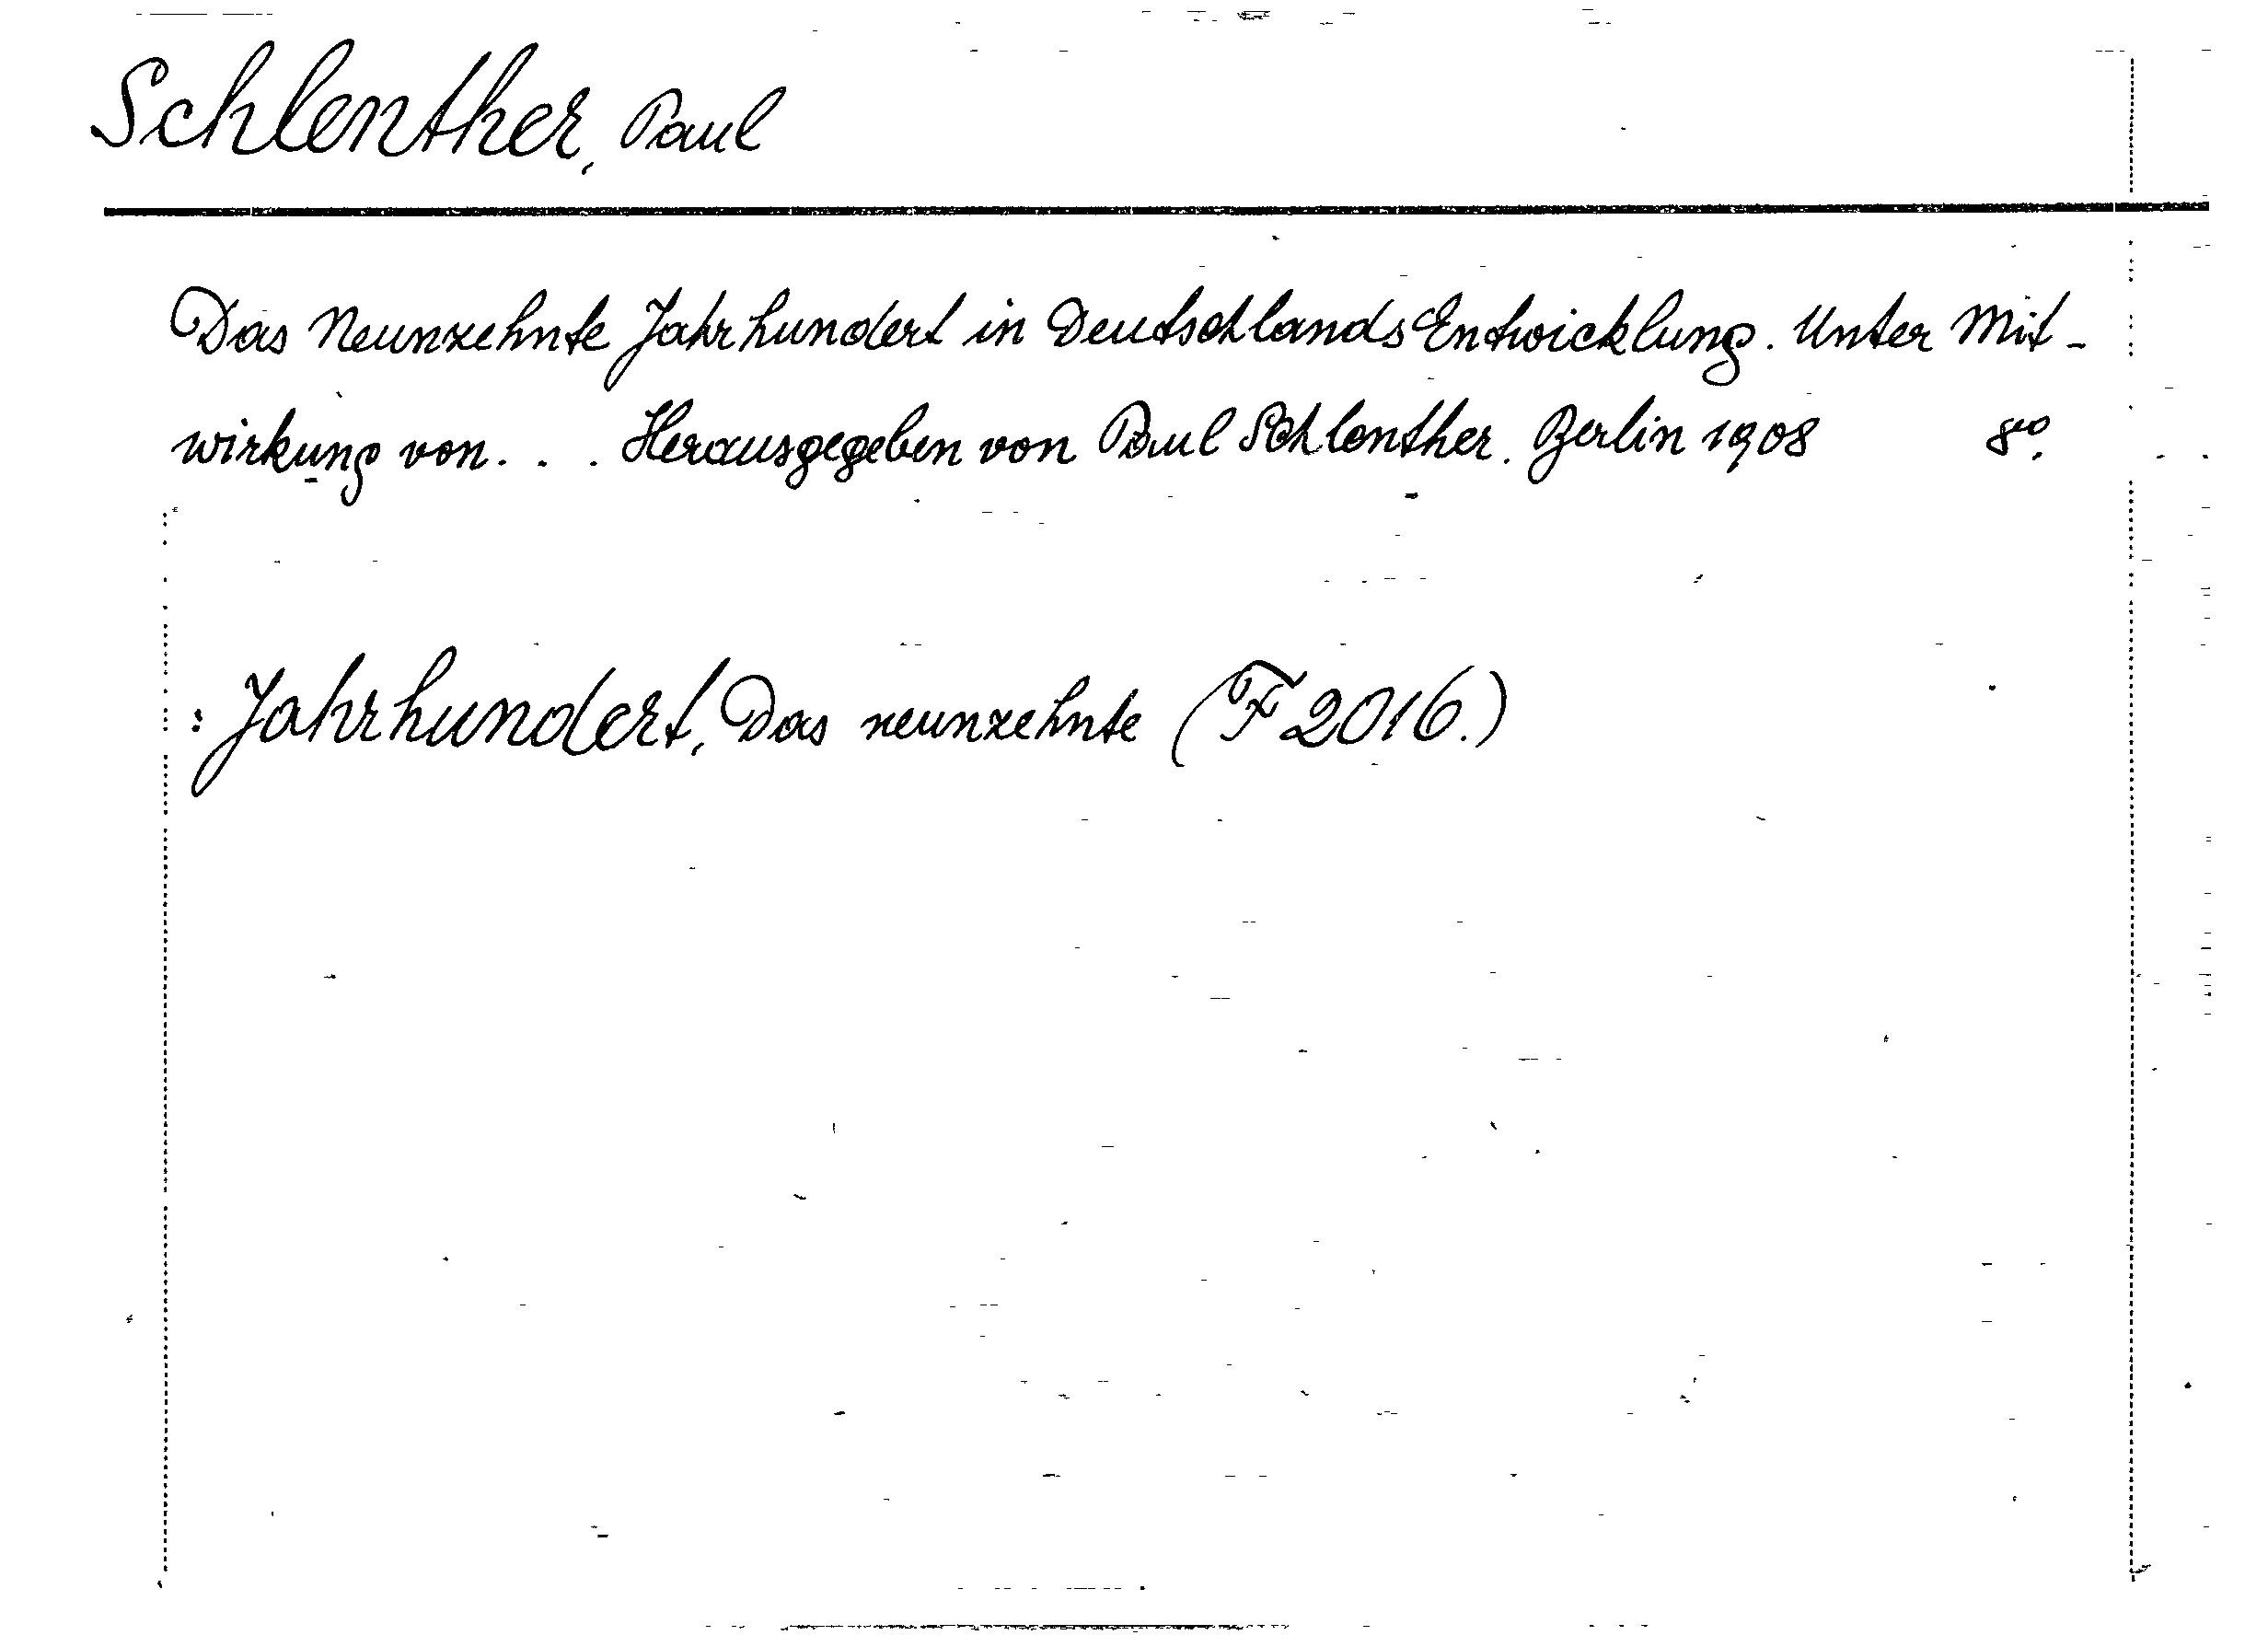 Schlenther, Paul
Das Neunzehnte Jahrhundert in Deutschlands Entwicklung. Unter Mit-
wirkung von... Herausgegeben von Paul Schlenther. Berlin 1908 8vo.
: Jahrhundert, Das neunzehnte (F 2016.)